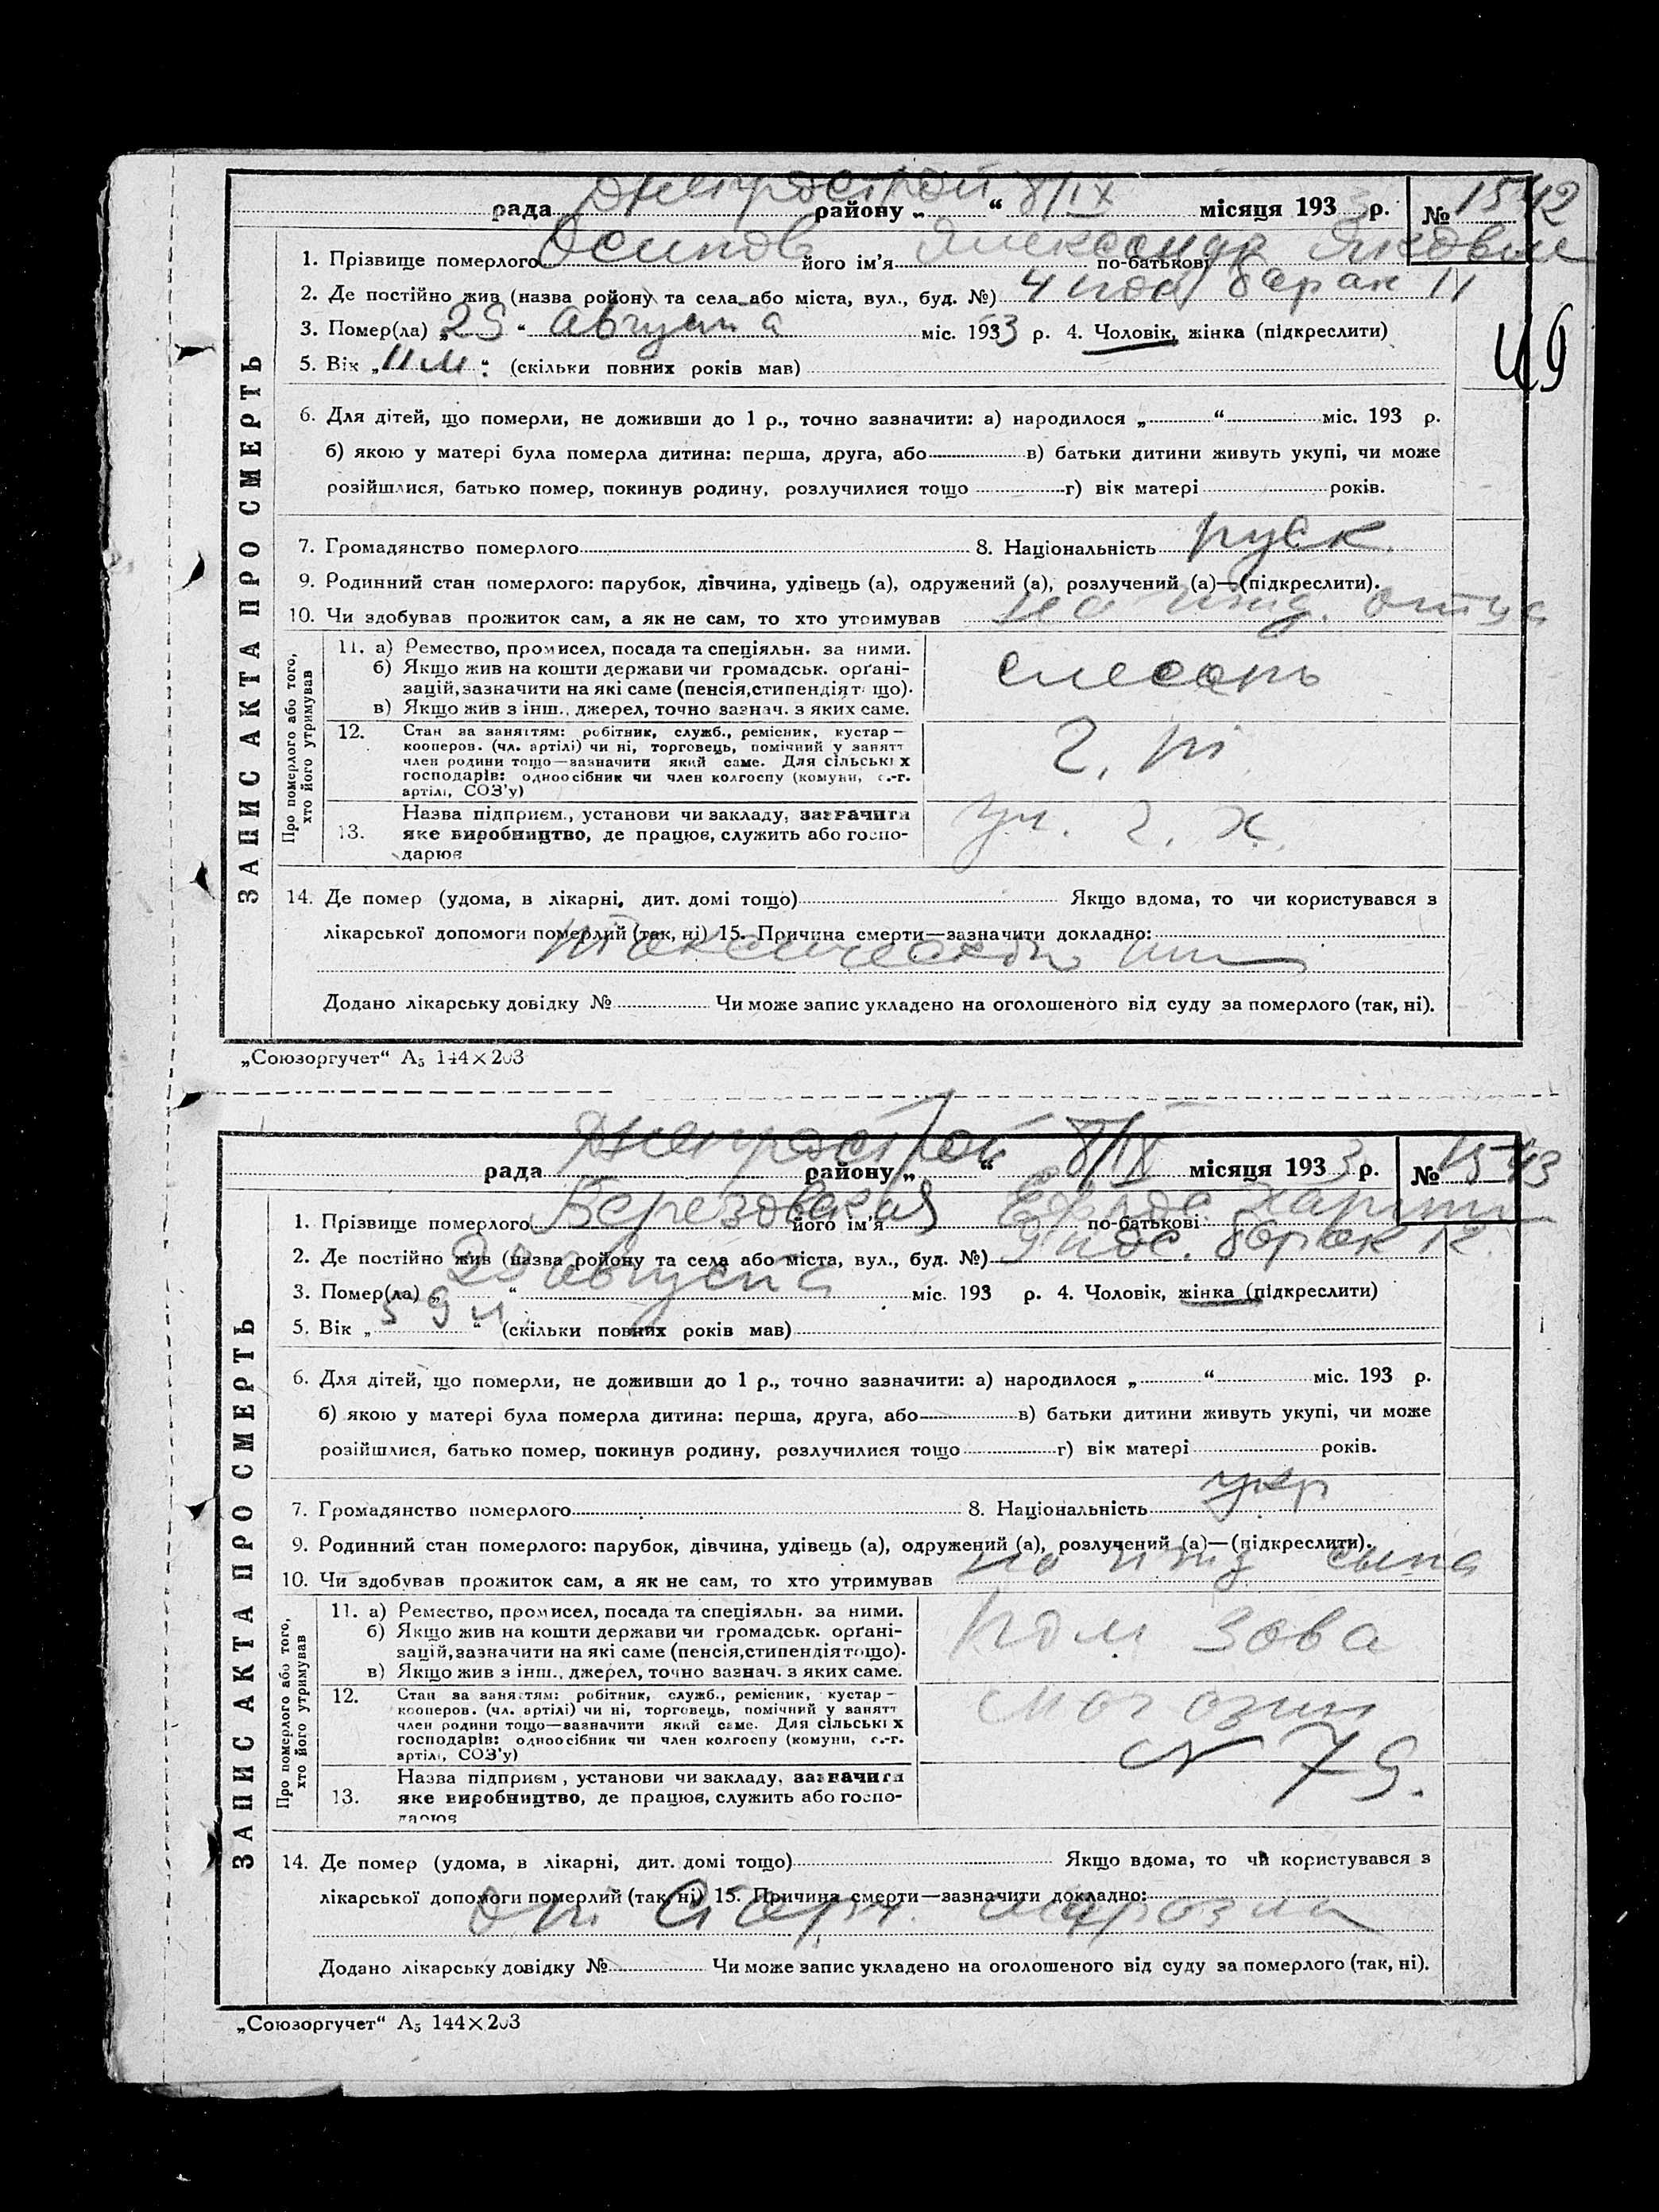 рада Днепрострой району „ “ 8/IX місяця 1933 р. № 1542
1. Прізвище померлого Осипов його ім'я Александр по-батькові
2. Де постійно жив (назва ройону та села або міста, вул., буд. №) 4 барак 11
3. Помер(ла) „29 “ августа міс. 1933 р. 4. Чоловік, жінка (підкреслити)
49
5. Вік „11 м“ (скільки повних років мав)
6. Для дітей, що померли, не доживши до 1 р., точно зазначити: а) народилося „ “ міс. 193 р.
б) якою у матері була померла дитина: перша, друга, або в) батьки дитини живуть укупі, чи може
розійшлися, батько помер, покинув родину, розлучилися тощо г) вік матері років.
7. Громадянство померлого 8. Національність руск
9. Родинний стан померлого: парубок, дівчина, удівець (а), одружений (а), розлучений (а)—(підкреслити).
10. Чи здобував прожиток сам, а як не сам, то хто утримував на ижд. отца
ЗАПИС АКТА ПРО СМЕРТЬ
Про померлого або того, хто його утримував
11. а) Ремество, промисел, посада та спеціяльн. за ними.
б) Якщо жив на кошти держави чи громадськ. орґані-
зацій, зазначити на які саме (пенсія, стипендія т що).
в) Якщо жив з інш., джерел, точно зазнач. з яких саме.
слесарь
12. Стан за заняттям: робітник, служб., ремісник, кустар—
кооперов. (чл. артілі) чи ні, торговець, помічний у занятт
член родини тощо—зазначити який саме. Для сільських
господарів: одноосібник чи член колгоспу (комуни, с.-г.
артілі, СОЗ'у)
13. Назва підприєм., установи чи закладу, зазначити
яке виробництво, де працює, служить або госпо-
дарює
14. Де помер (удома, в лікарні, дит. домі тощо) Якщо вдома, то чи користувався з
лікарської допомоги померлий (так, ні) 15. Причина смерти—зазначити докладно:
Додано лікарську довідку № Чи може запис укладено на оголошеного від суду за померлого (так, ні).
„Союзоргучет“ А5 144×203
рада Днепрострой району „ “ 8/IX місяця 1933 р. № 1543
1. Прізвище померлого Березовская його ім'я по-батькові
2. Де постійно жив (назва ройону та села або міста, вул., буд. №) барак 12
3. Помер(ла) „29 “ августа міс. 193 р. 4. Чоловік, жінка (підкреслити)
5. Вік „59 л“ (скільки повних років мав)
6. Для дітей, що померли, не доживши до 1 р., точно зазначити: а) народилося „ “ міс. 193 р.
б) якою у матері була померла дитина: перша, друга, або в) батьки дитини живуть укупі, чи може
розійшлися, батько помер, покинув родину, розлучилися тощо г) вік матері років.
7. Громадянство померлого 8. Національність укр
9. Родинний стан померлого: парубок, дівчина, удівець (а), одружений (а), розлучений (а)—(підкреслити).
10. Чи здобував прожиток сам, а як не сам, то хто утримував на ижд сына
ЗАПИС АКТА ПРО СМЕРТЬ
Про померлого або того, хто його утримував
11. а) Ремество, промисел, посада та спеціяльн. за ними.
б) Якщо жив на кошти держави чи громадськ. орґані-
зацій, зазначити на які саме (пенсія, стипендія тощо).
в) Якщо жив з інш., джерел, точно зазнач. з яких саме.
пом зава
12. Стан за заняттям: робітник, служб., ремісник, кустар—
кооперов. (чл. артілі) чи ні, торговець, помічний у занятт
член родини тощо—зазначити який саме. Для сільських
господарів: одноосібник чи член колгоспу (комуни, с.-г.
артілі, СОЗ'у)
магазин
N 79.
13. Назва підприєм, установи чи закладу, зазначити
яке виробництво, де працює, служить або госпо-
дарює
14. Де помер (удома, в лікарні, дит. домі тощо) Якщо вдома, то чи користувався з
лікарської допомоги померлий (так, ні) 15. Причина смерти—зазначити докладно:
Додано лікарську довідку № Чи може запис укладено на оголошеного від суду за померлого (так, ні).
„Союзоргучет“ А5 144×203